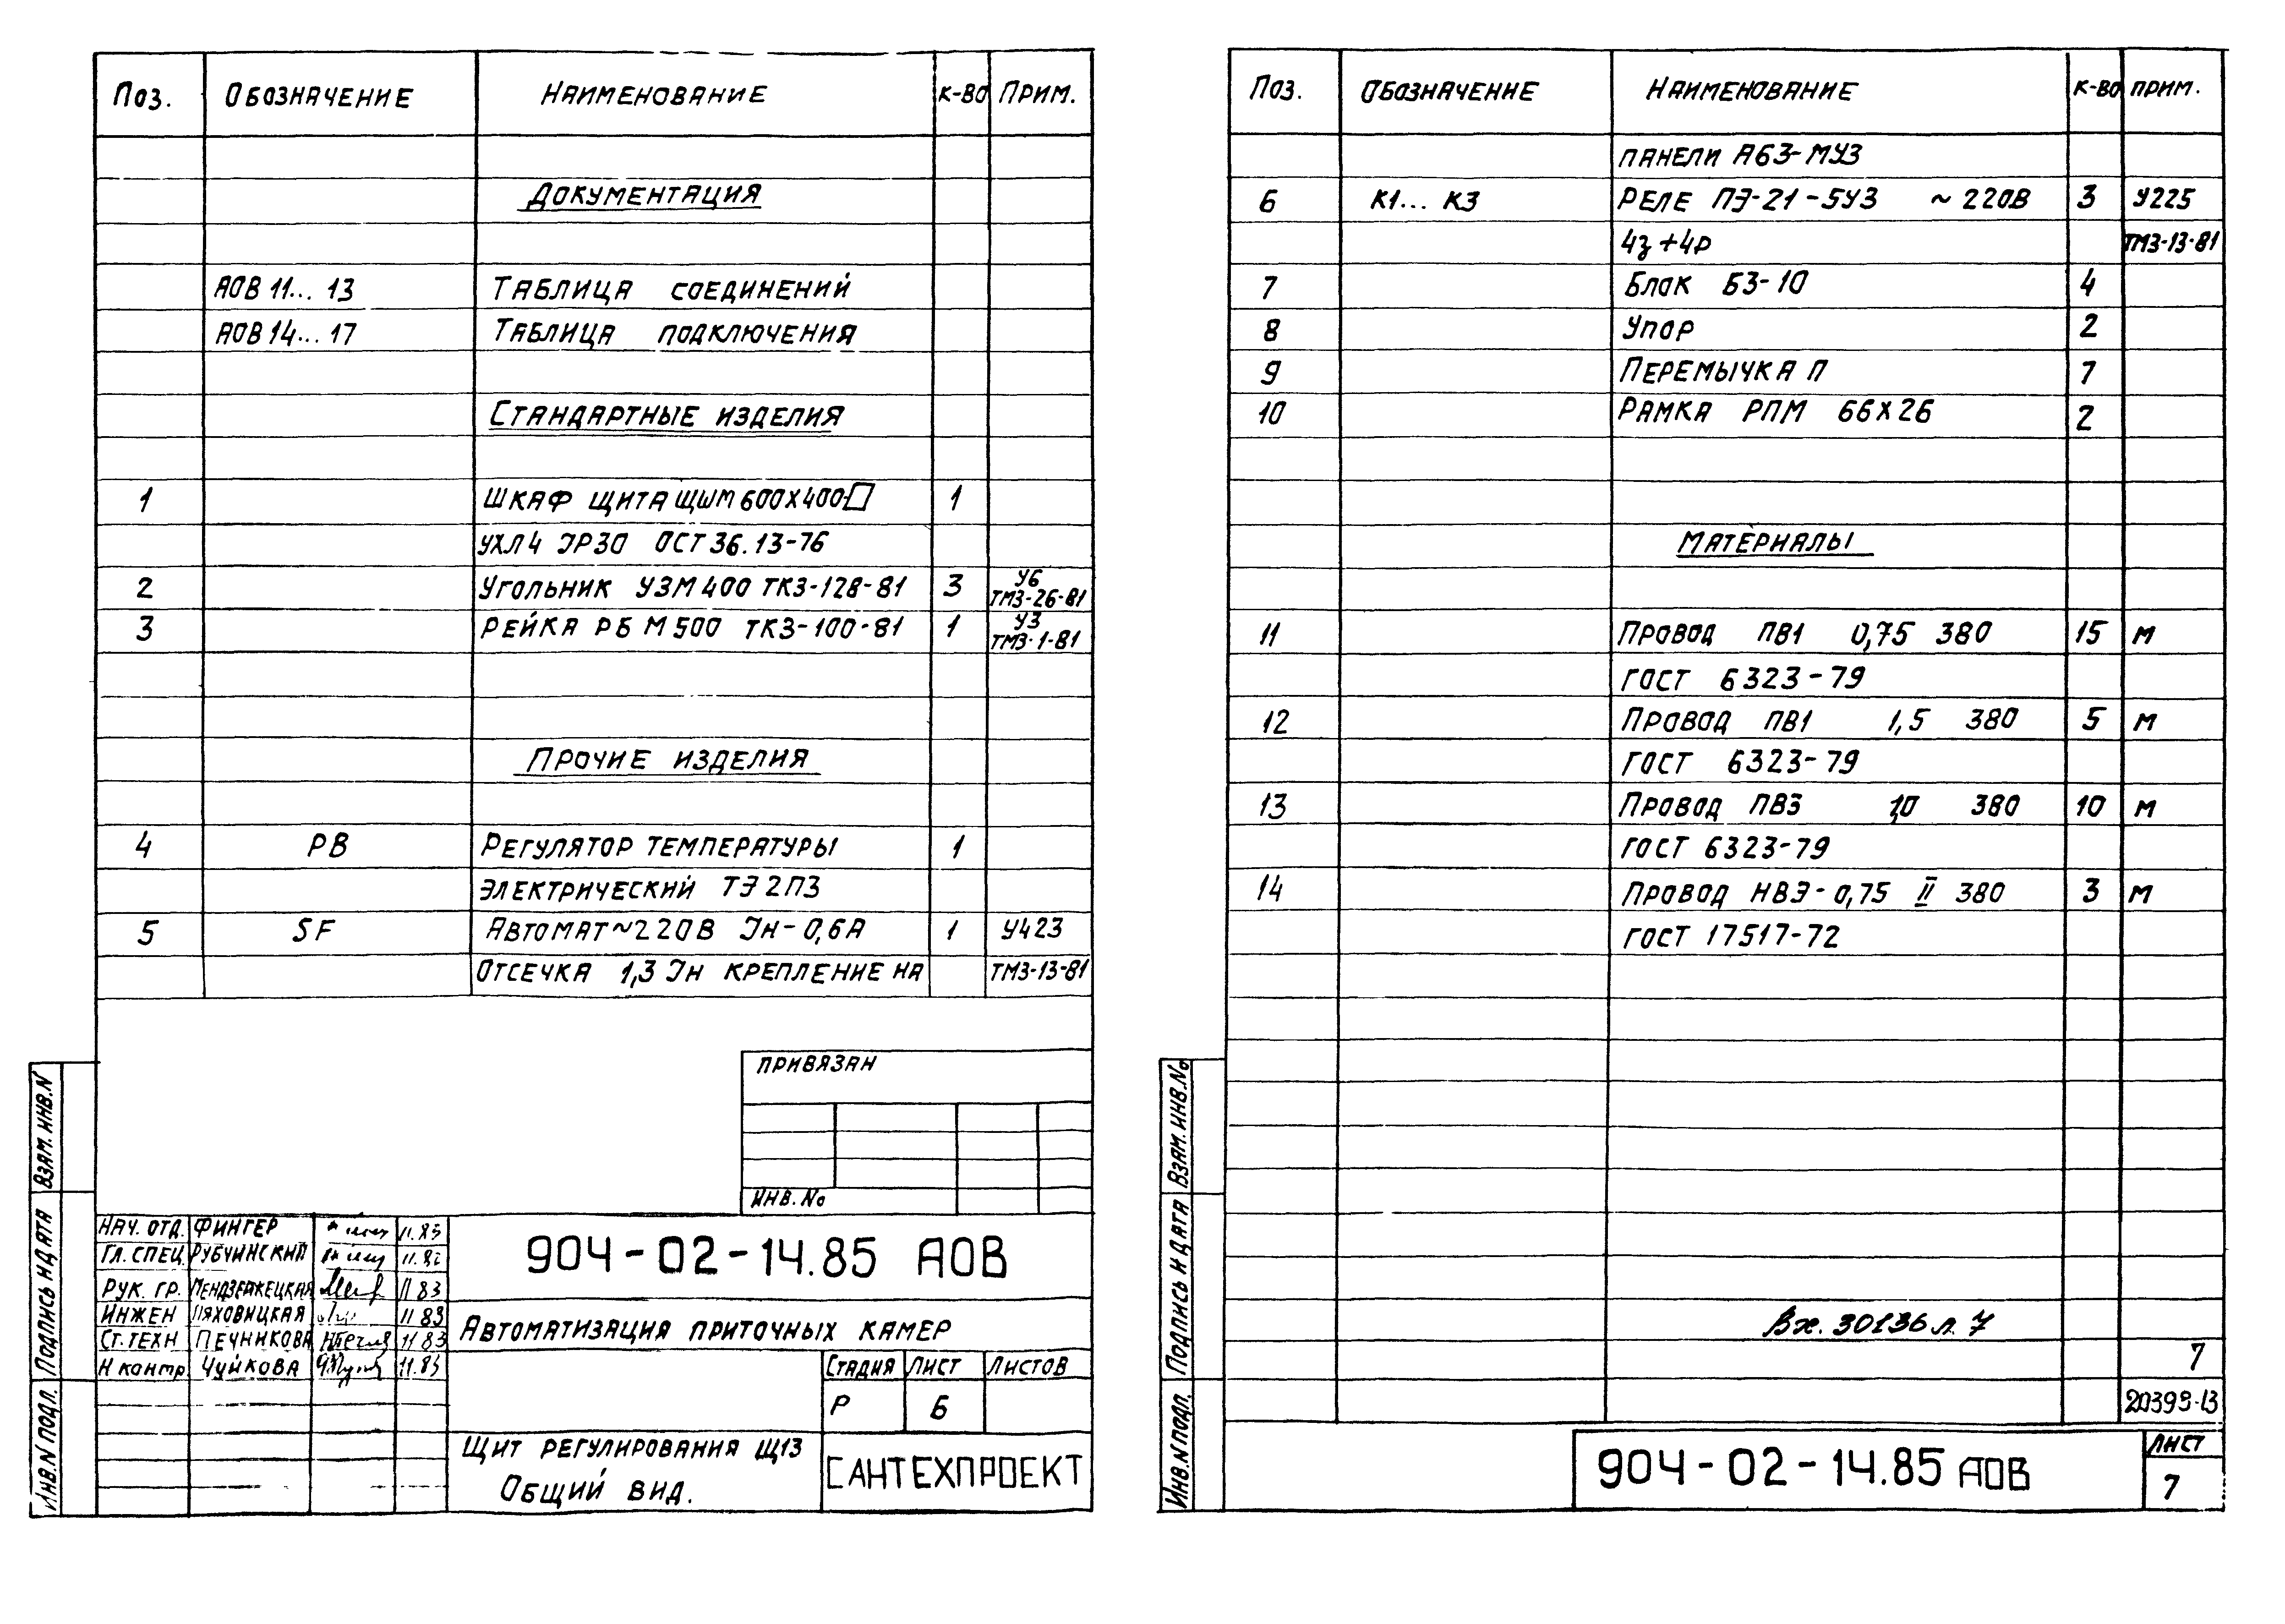 Поз. Обозначение Наименование К-во Прим.
Документация
АОВ 11... 13 Таблица соединений
АОВ 14... 17 Таблица подключения
Стандартные изделия
1 Шкаф щита ЩШМ 600х400-□ 1
УХЛ4 IP30 ОСТ 36.13-76
2 Угольник УЗМ 400 ТК3-128-81 3 У6
ТМ3-26-81
3 Рейка РБ М500 ТК3-100-81 1 У3
ТМ3-1-81
Прочие изделия
4 РВ Регулятор температуры 1
электрический ТЭ2П3
5 SF Автомат ~220В Iн-0,6А 1 У423
Отсечка 1,3 Iн крепление на ТМ3-13-81
Привязан
Инв. №
Нач. отд. Фингер 11.83
Гл. спец. Рубчинский 11.83
Рук. гр. Мендзержецкая 11 83
Инжен Ляховицкая 11 83
Ст. техн Печникова 11 83
Н контр. Чуйкова 11.83
904-02-14.85 АОВ
Автоматизация приточных камер
Стадия Лист Листов
Р 6
Щит регулирования Щ13
Общий вид.
САНТЕХПРОЕКТ
Взам. инв. N
Подпись и дата
Инв. N подл.
Поз. Обозначение Наименование К-во Прим.
панели А63-МУ3
6 К1... К3 Реле ПЭ-21-5У3 ~220В 3 У225
4з+4р ТМ3-13-81
7 Блок БЗ-10 4
8 Упор 2
9 Перемычка П 7
10 Рамка РПМ 66х26 2
Материалы
11 Провод ПВ1 0,75 380 15 м
ГОСТ 6323-79
12 Провод ПВ1 1,5 380 5 м
ГОСТ 6323-79
13 Провод ПВ3 1,0 380 10 м
ГОСТ 6323-79
14 Провод НВЭ-0,75 II 380 3 м
ГОСТ 17517-72
Вх. 30136 л. 7
7
20393-13
904-02-14.85 АОВ
Лист
7
Взам. инв. №
Подпись и дата
Инв. N подл.